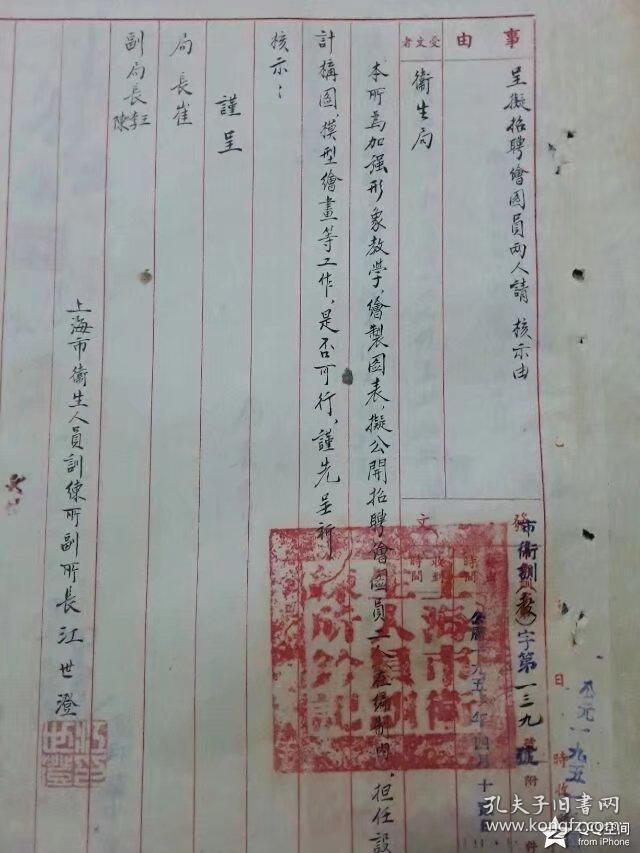 事由
呈擬招聘繪圖員兩人請 核示由
受文者
衞生局
發文
市衞訓(教)字第一三九號附件
四月十
日 時收
公元一九五
本所爲加強形象教學，繪製圖表，擬公開招聘繪圖員二人在編制內，担任設
計構圖，模型繪畫等工作，是否可行，謹先呈祈
核示：
謹呈
局長崔
副局長王李陳
上海市衞生人員訓練所副所長江世澄
上海市衞生人員訓練所鈐記
江世澄印
孔夫子旧书网
www.kongfz.com
QQ空间
from iPhone